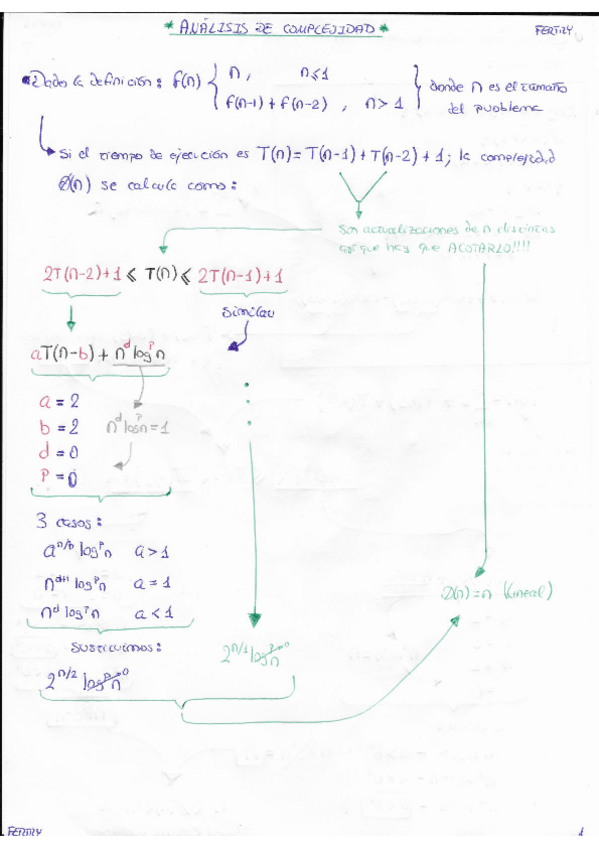 * ANÁLISIS DE COMPLEJIDAD *
FERTIZY
Dado la definición: f(n) { n, n≤1
f(n-1) + f(n-2), n>1 } donde n es el tamaño
del problema
Si el tiempo de ejecución es T(n) = T(n-1) + T(n-2) + 1; la complejidad
O(n) se calcula como:
Son actualizaciones de n distintas
así que hay que ACOTARLO!!!!
2T(n-2)+1 ≤ T(n) ≤ 2T(n-1)+1
Similar
aT(n-b) + n^d log^p n
a = 2
b = 2
n^d log^p n = 1
d = 0
p = 0
3 casos:
a^n/b log^p n a>1
n^d+1 log^p n a = 1
n^d log^p n a < 1
Ω(n) = n (lineal)
Sustituimos:
2^n/1 log^p→0 n
2^n/2 log^p→0 n
FERTIZY
1